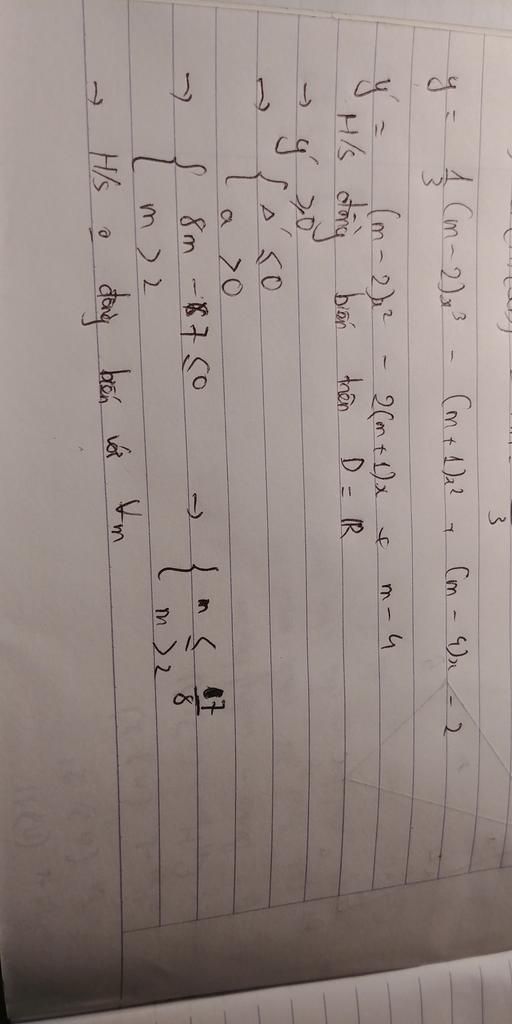 y = 1/3 (m - 2)x³ - (m + 1)x² + (m - 4)x - 2
y' = (m - 2)x² - 2(m + 1)x + m - 4
H/s đồng biến trên D = R
→ y' ≥ 0
→ { Δ' ≤ 0
a > 0
→ { 8m - 7 ≤ 0 → { m ≤ 7/8
m > 2 m > 2
→ H/s o đồng biến với ∀m